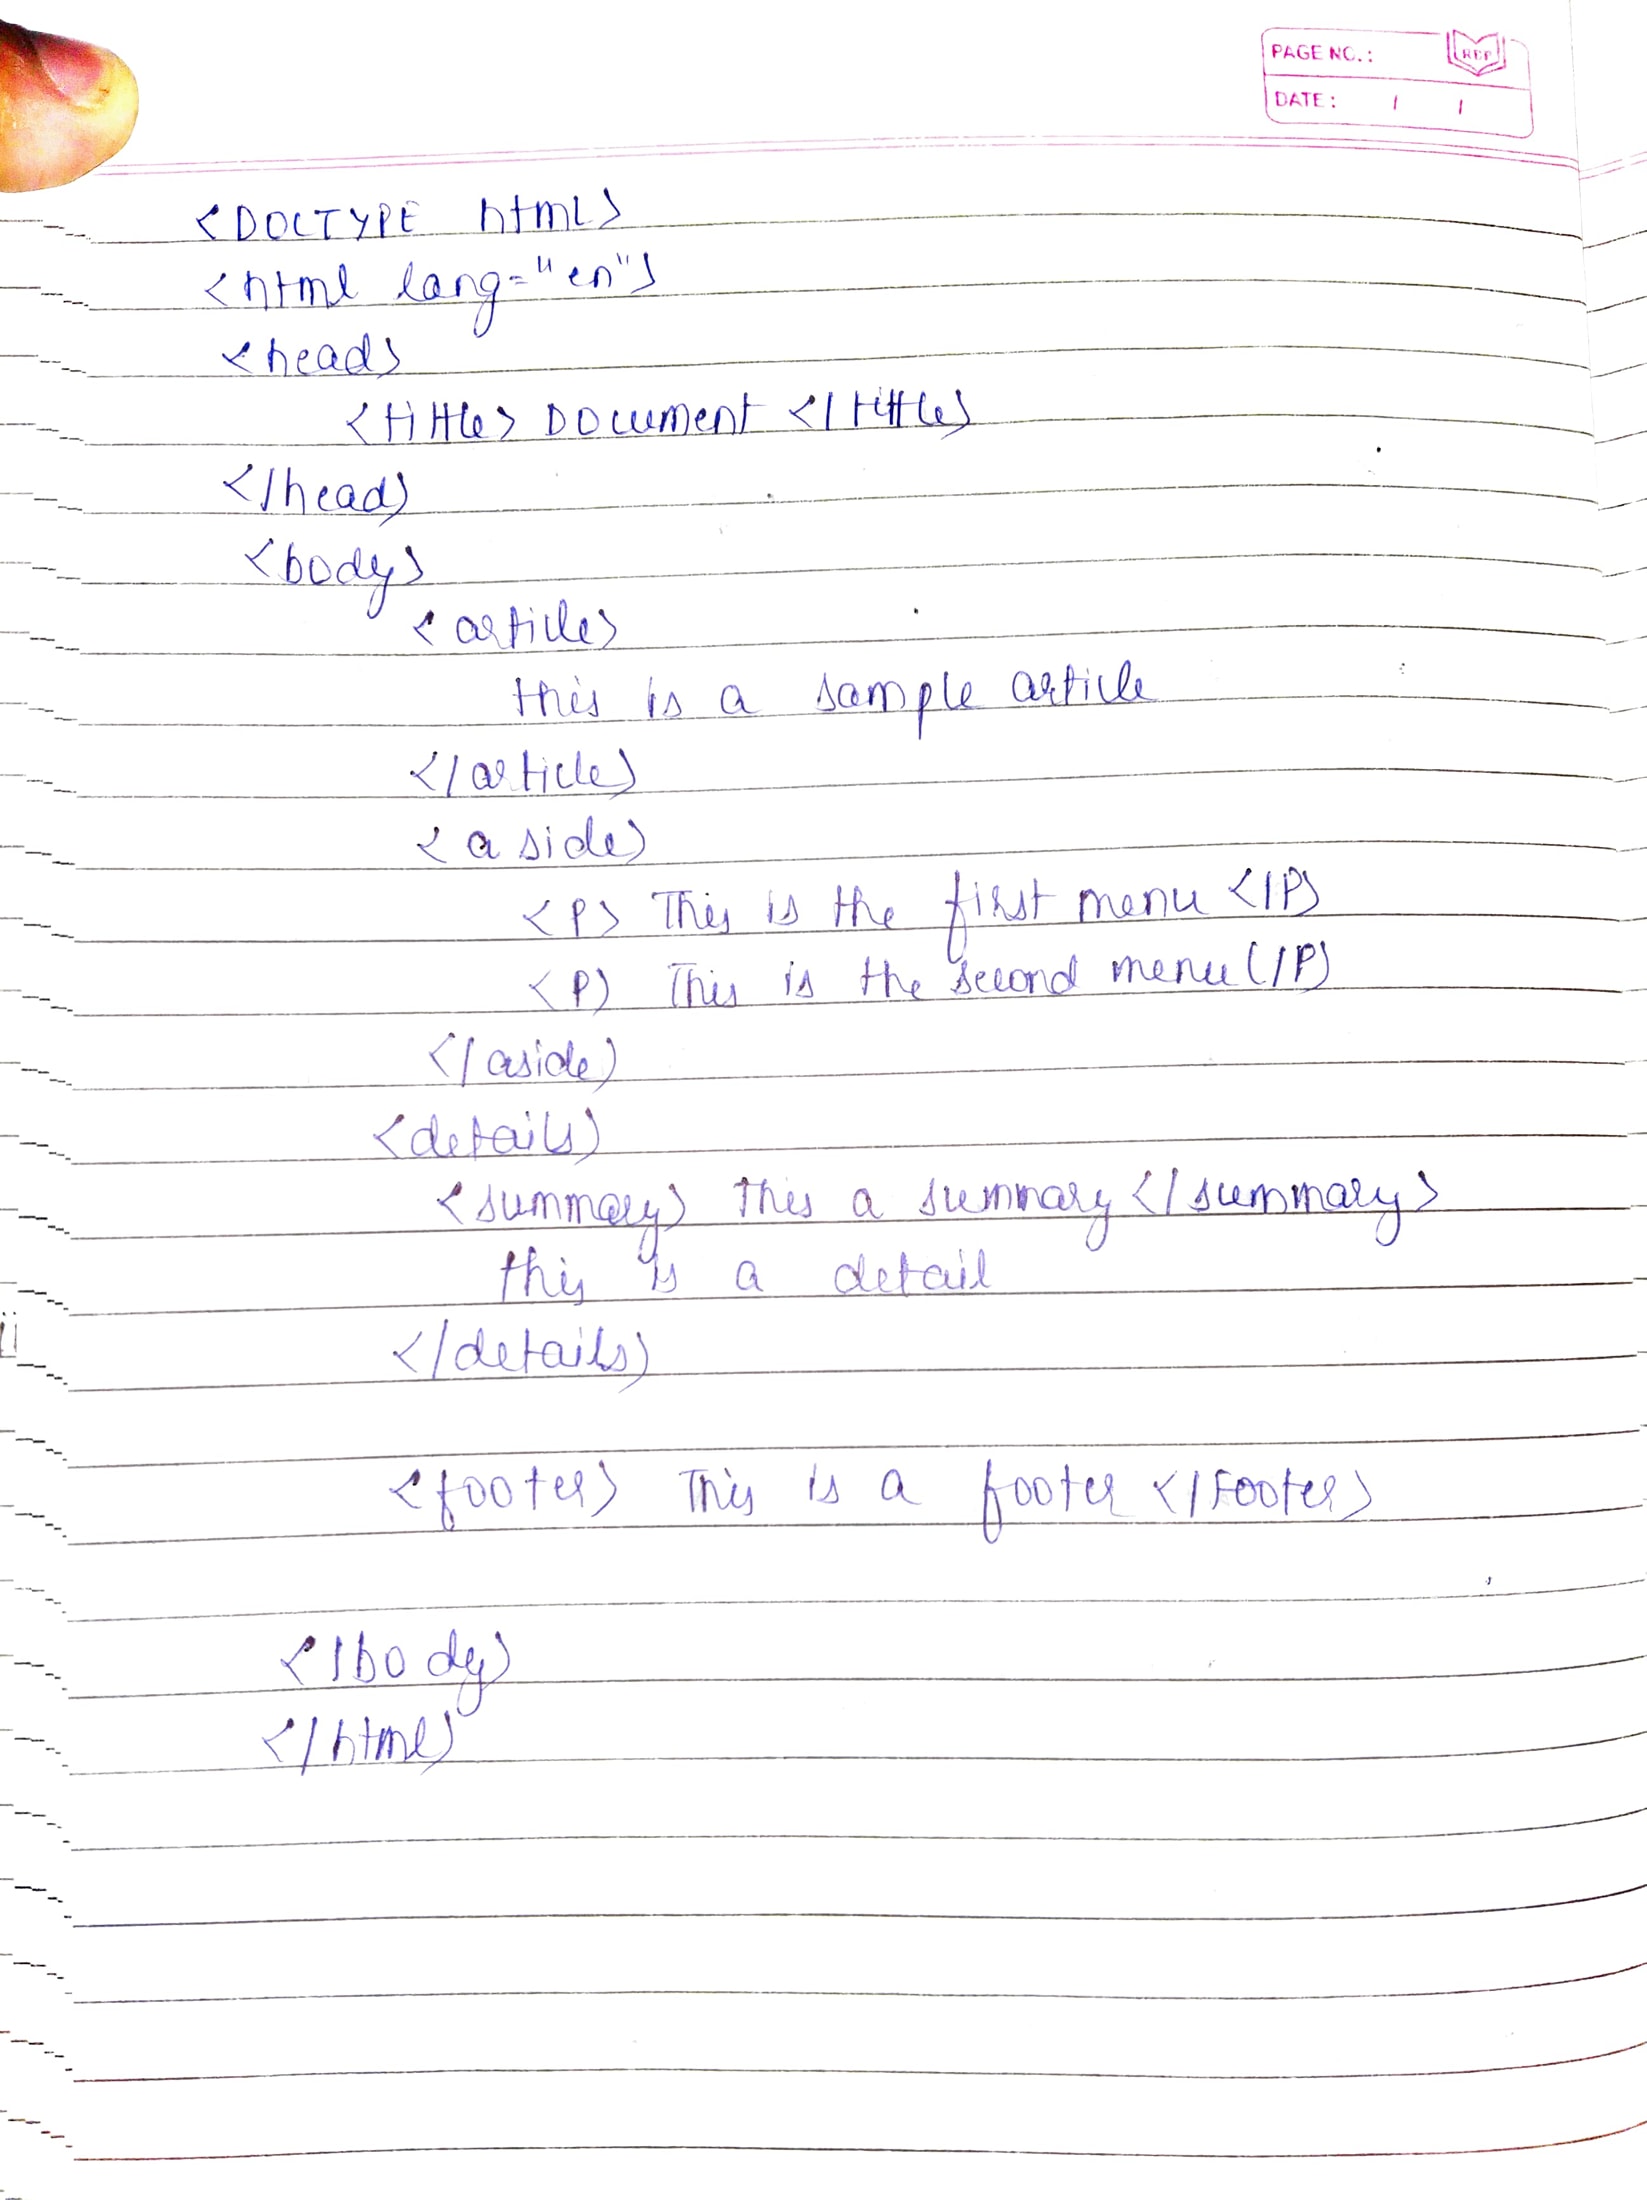 PAGE NO.:
RBP
DATE: / /
<DOCTYPE html>
<html lang="en">
<head>
<tittle> Document </tittle>
</head>
<body>
<article>
this is a sample article
</article>
<aside>
<P> This is the first menu </P>
<P> This is the second menu </P>
</aside>
<details>
<summary> this a summary </summary>
this is a detail
</details>
<footer> This is a footer </Footer>
</body>
</html>